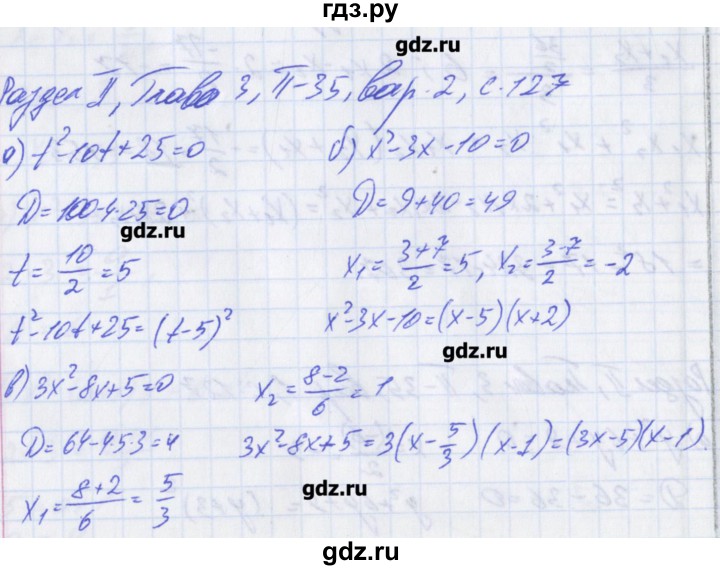 гдз.ру
gdz.ru
Раздел II, Глава 3, П-35, вар. 2, с. 127
а) t²-10t+25=0
D=100-4·25=0
gdz.ru
t=10/2=5
t²-10t+25=(t-5)²
б) x²-3x-10=0
D=9+40=49
x₁=(3+7)/2=5, x₂=(3-7)/2=-2
x²-3x-10=(x-5)(x+2)
gdz.ru
в) 3x²-8x+5=0
D=64-4·5·3=4
x₁=(8+2)/6=5/3
x₂=(8-2)/6=1
3x²-8x+5=3(x-5/3)(x-1)=(3x-5)(x-1).
gdz.ru
gdz.ru